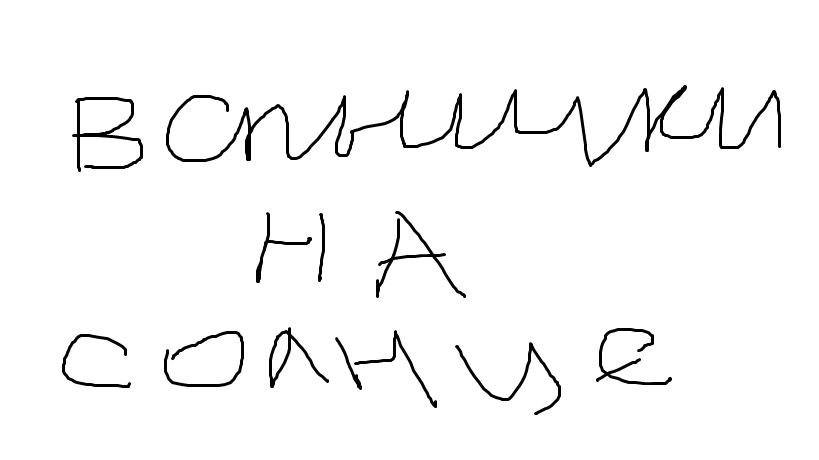 вспышки
на
солнце